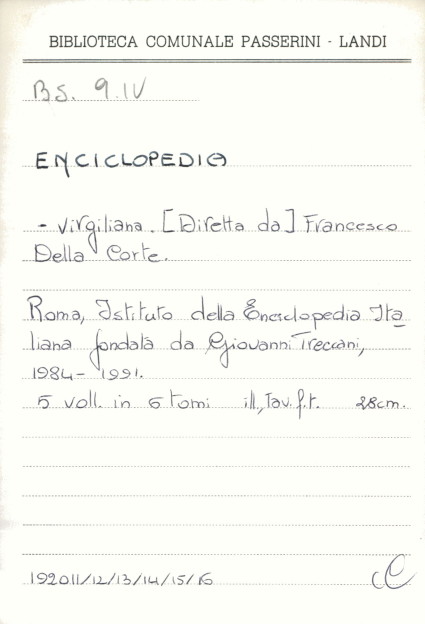 BIBLIOTECA COMUNALE PASSERINI - LANDI
BS. 9.IV
ENCICLOPEDIA
- Virgiliana. [Diretta da] Francesco
Della Corte.
Roma, Istituto della Enciclopedia Ita
liana fondata da Giovanni Treccani,
1984-1991.
5 voll. in 6 tomi ill., tav. f.t. 28cm.
192011/12/13/14/15/16